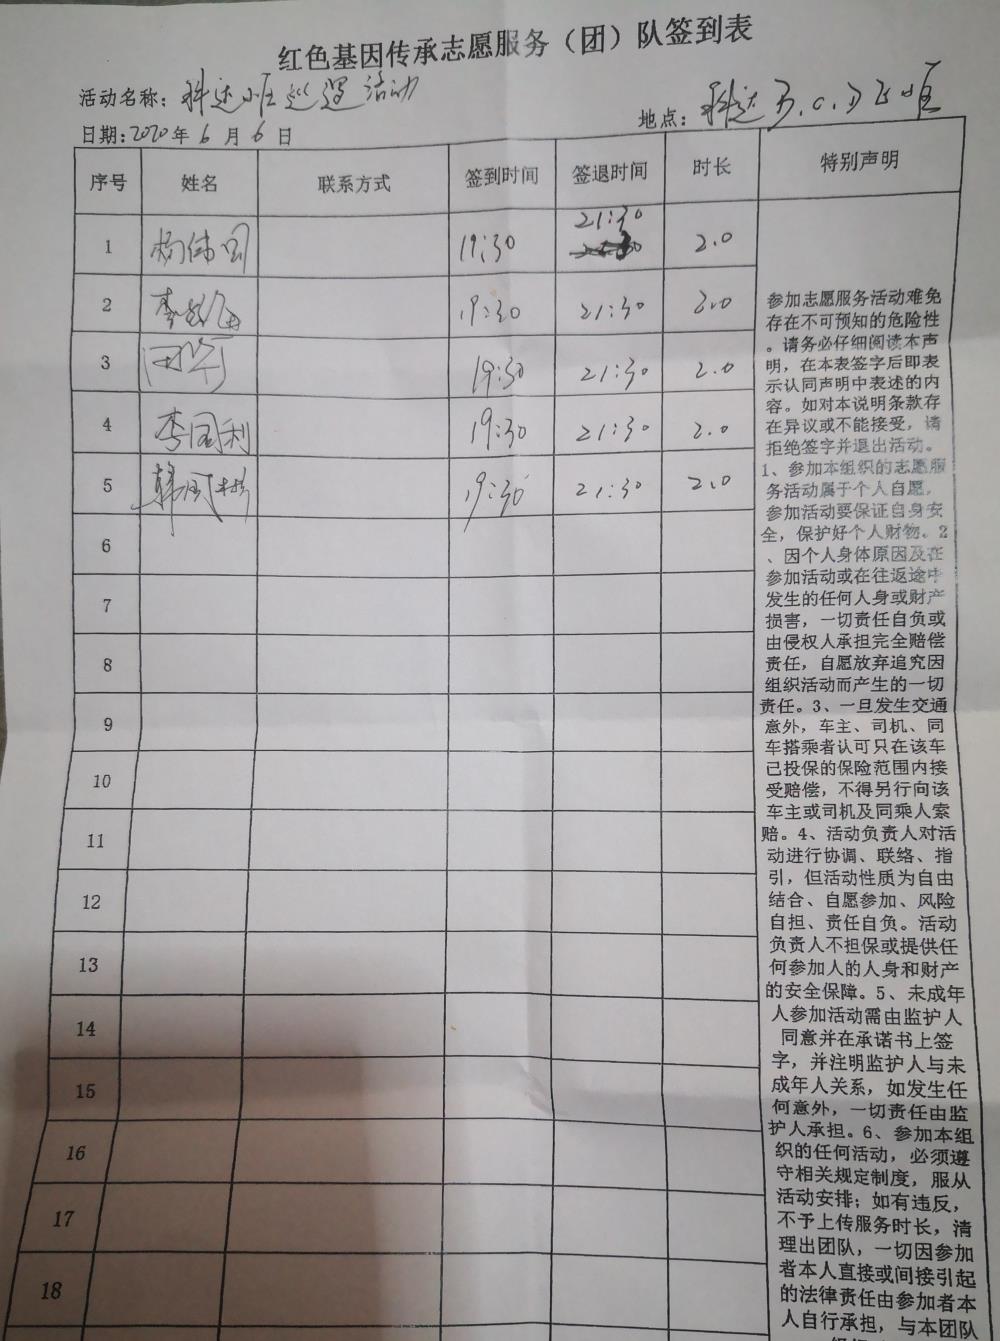 红色基因传承志愿服务（团）队签到表
活动名称：科达小区巡逻活动
地点：科达B.C.D小区
日期：2020年6月6日
序号 姓名 联系方式 签到时间 签退时间 时长 特别声明
1 杨伟国 19:30 21:30 2.0
2 李 19:30 21:30 2.0
3 田军 19:30 21:30 2.0
4 李国利 19:30 21:30 2.0
5 韩 19:30 21:30 2.0
6
7
8
9
10
11
12
13
14
15
16
17
18
参加志愿服务活动难免
存在不可预知的危险性
。请务必仔细阅读本声
明，在本表签字后即表
示认同声明中表述的内
容。如对本说明条款存
在异议或不能接受，请
拒绝签字并退出活动。
1、参加本组织的志愿服
务活动属于个人自愿，
参加活动要保证自身安
全，保护好个人财物。2
、因个人身体原因及在
参加活动或在往返途中
发生的任何人身或财产
损害，一切责任自负或
由侵权人承担完全赔偿
责任，自愿放弃追究因
组织活动而产生的一切
责任。3、一旦发生交通
意外，车主、司机、同
车搭乘者认可只在该车
已投保的保险范围内接
受赔偿，不得另行向该
车主或司机及同乘人索
赔。4、活动负责人对活
动进行协调、联络、指
引，但活动性质为自由
结合、自愿参加、风险
自担、责任自负。活动
负责人不担保或提供任
何参加人的人身和财产
的安全保障。5、未成年
人参加活动需由监护人
同意并在承诺书上签
字，并注明监护人与未
成年人关系，如发生任
何意外，一切责任由监
护人承担。6、参加本组
织的任何活动，必须遵
守相关规定制度，服从
活动安排；如有违反，
不予上传服务时长，清
理出团队，一切因参加
者本人直接或间接引起
的法律责任由参加者本
人自行承担，与本团队